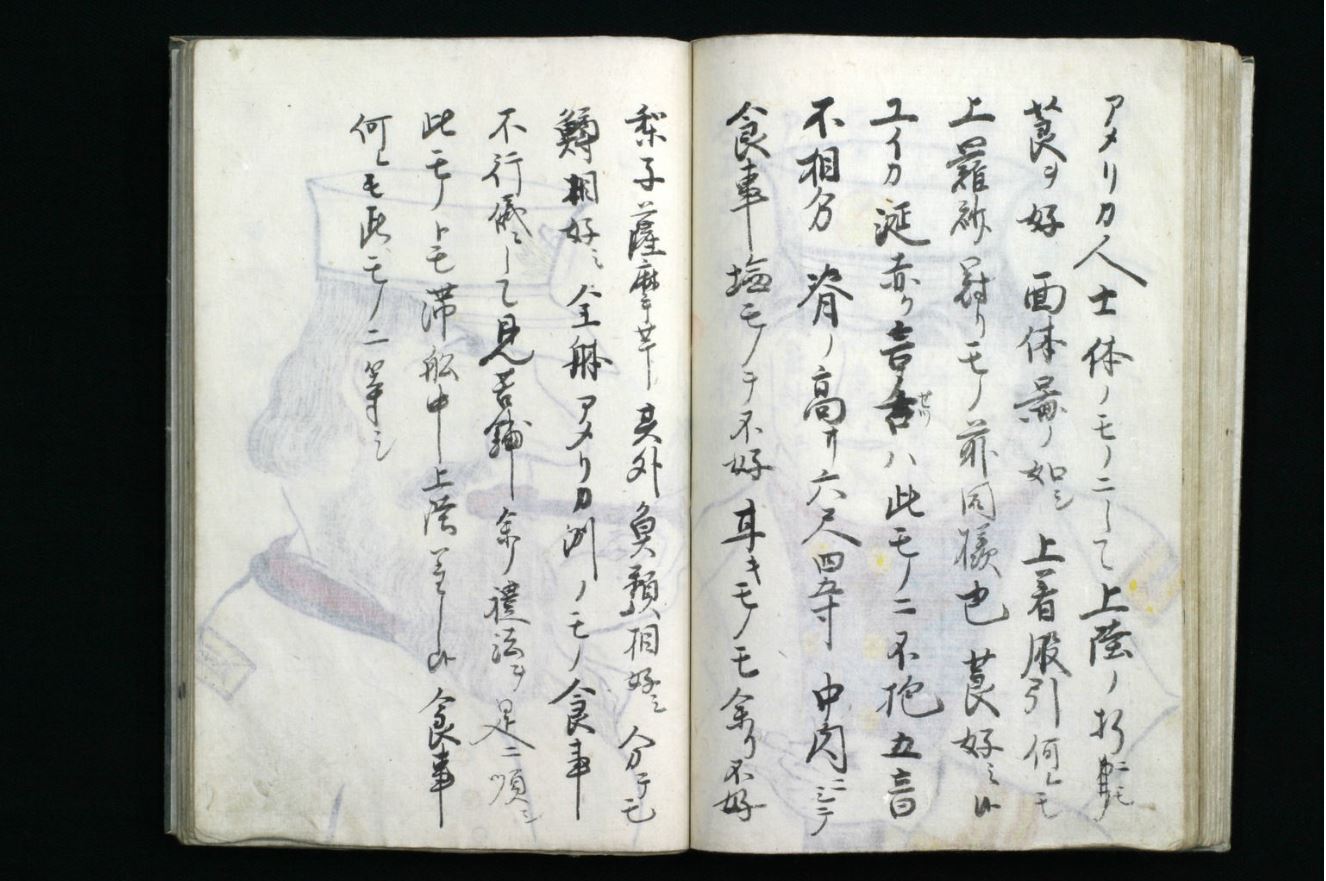 アメリカ人士体ノモノニして上陸ノ折ニモ
莨ヲ好 面体図ノ如シ 上着股引何レモ
上羅紗 飾りモノ 同様也 莨好ミ候
ユイカ 延赤ク 言舌ハ此モノニ不抱五音
不相分 脊ノ高サ六尺四五寸 中肉ニシテ
食事 塩モノヲ不好 辛キモノモ余り不好
梨子薩摩芋 其外魚類相好ミ 分テモ
鱒相好ミ 全躰アメリカ洲ノモノ食事
不行儀ニして見苦舗 余り禮法ヲ 足ニ順シ
此モノトモ滞船中上陸 候 食事
何レモ此モノニ等シ